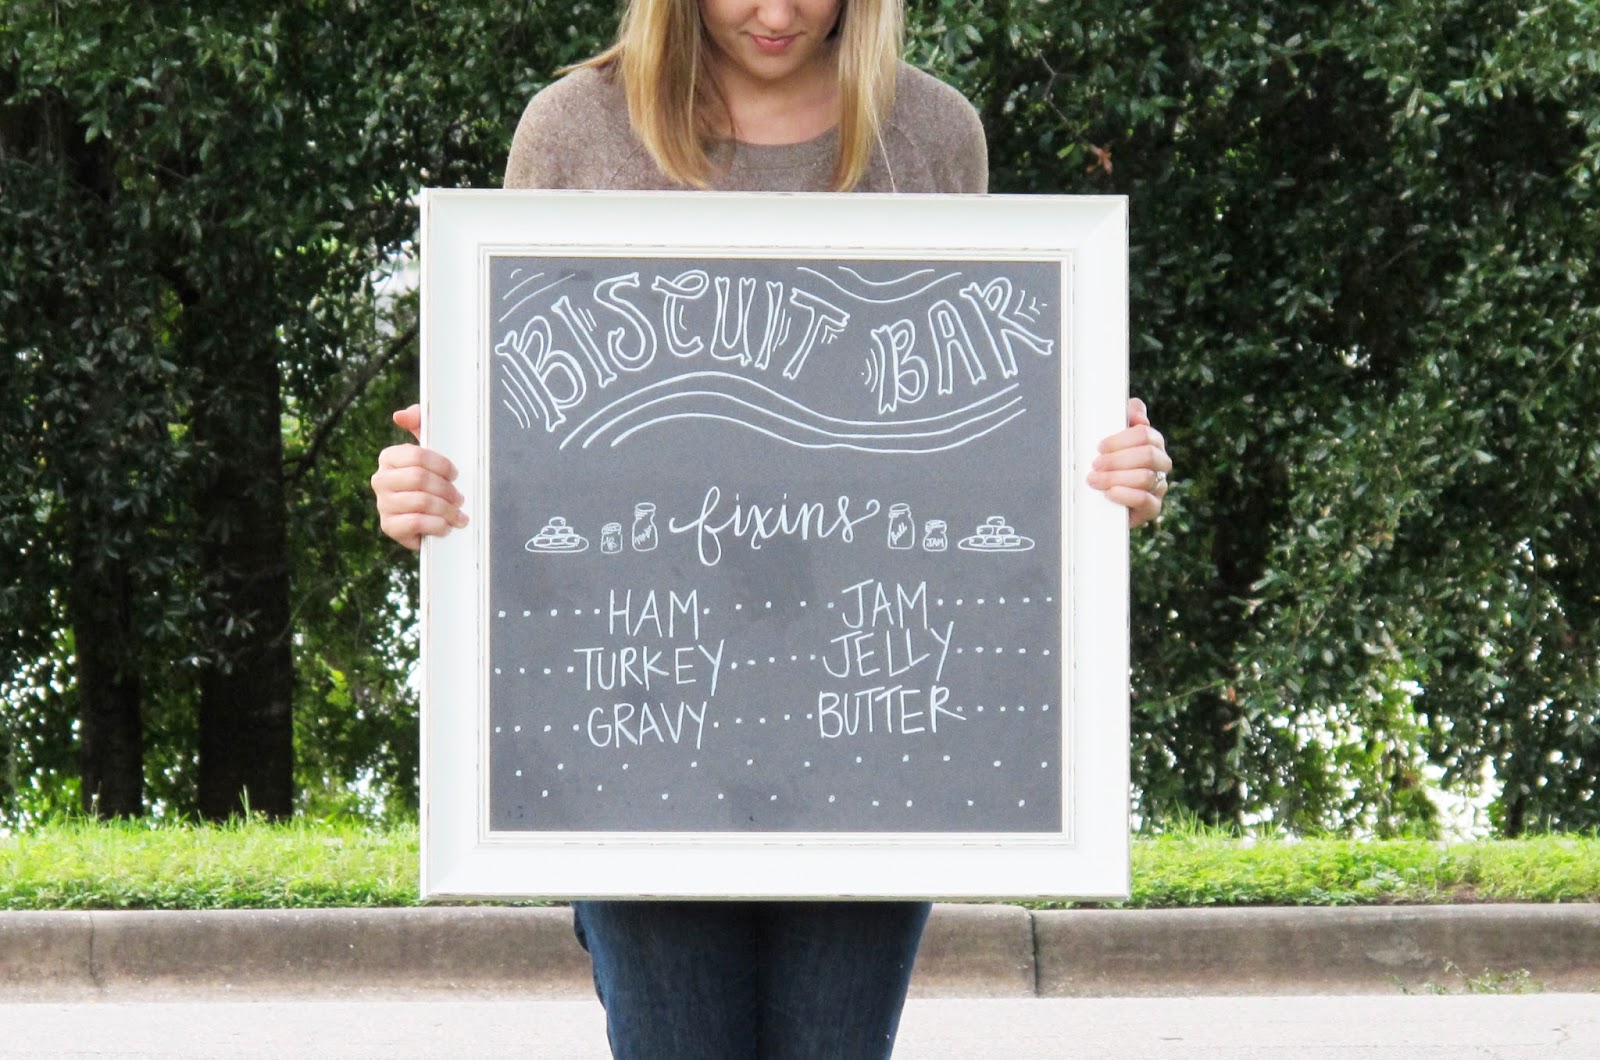 BISCUIT BAR
fixins
JAM
HAM JAM
TURKEY JELLY
GRAVY BUTTER